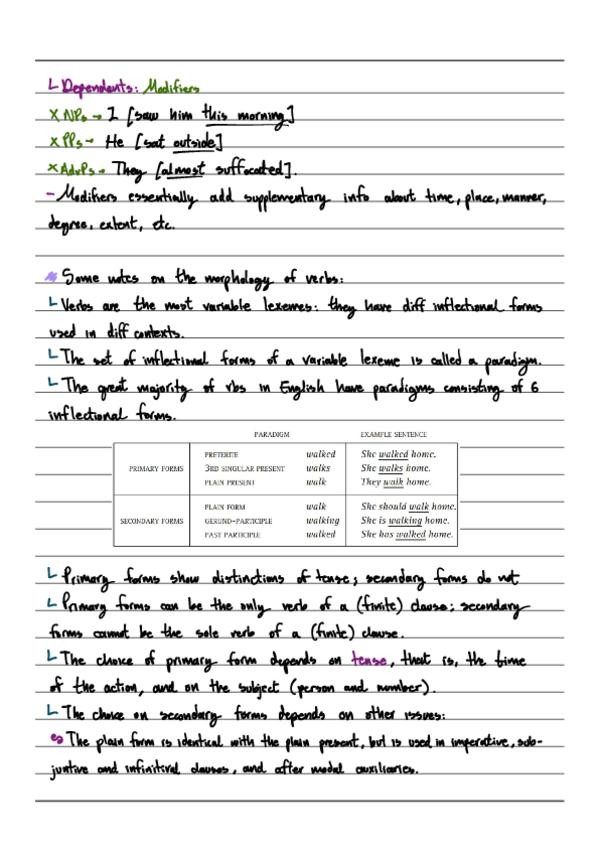 └ Dependents: Modifiers
x NPs → I [saw him this morning]
x PPs → He [sat outside]
x AdvPs → They [almost suffocated].
- Modifiers essentially add supplementary info about time, place, manner,
degree, extent, etc.
Some notes on the morphology of verbs:
└ Verbs are the most variable lexemes: they have diff inflectional forms
used in diff contexts.
└ The set of inflectional forms of a variable lexeme is called a paradigm.
└ The great majority of vbs in English have paradigms consisting of 6
inflectional forms.
PARADIGM EXAMPLE SENTENCE
PRETERITE walked She walked home.
PRIMARY FORMS 3RD SINGULAR PRESENT walks She walks home.
PLAIN PRESENT walk They walk home.
PLAIN FORM walk She should walk home.
SECONDARY FORMS GERUND-PARTICIPLE walking She is walking home.
PAST PARTICIPLE walked She has walked home.
└ Primary forms show distinctions of tense; secondary forms do not
└ Primary forms can be the only verb of a (finite) clause; secondary
forms cannot be the sole verb of a (finite) clause.
└ The choice of primary form depends on tense, that is, the time
of the action, and on the subject (person and number).
└ The choice on secondary forms depends on other issues:
The plain form is identical with the plain present, but is used in imperative, sub-
juntive and infinitival clauses, and after modal auxiliaries.